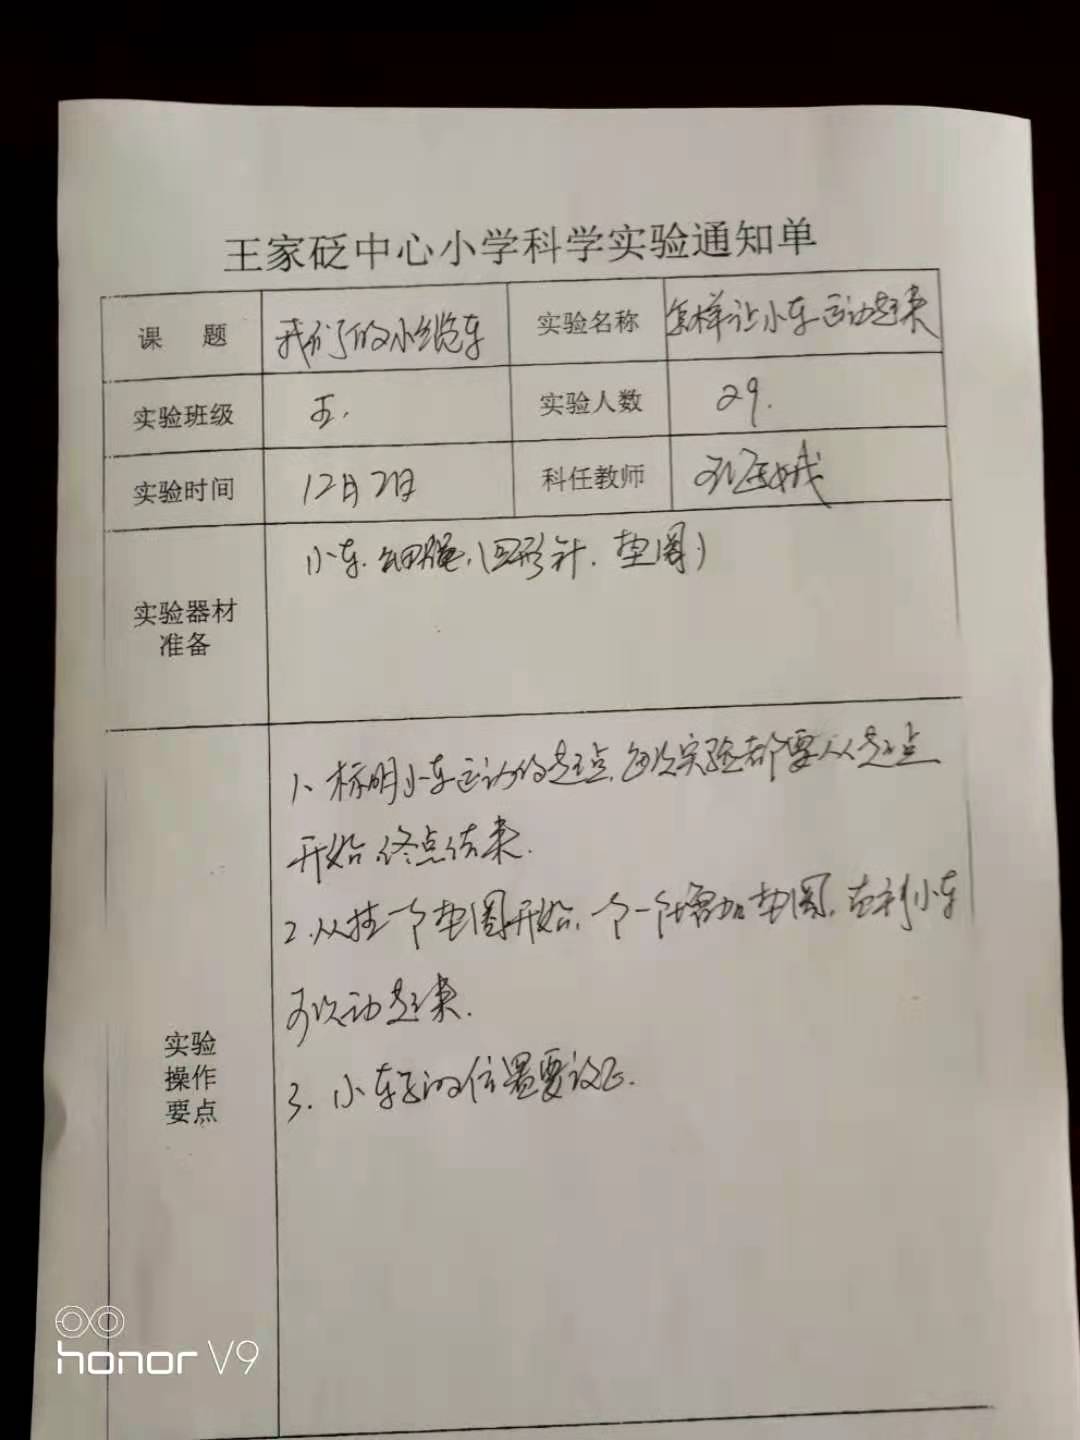 王家砭中心小学科学实验通知单
课 题 我们的小缆车 实验名称 怎样让小车运动起来
实验班级 五. 实验人数 29.
实验时间 12月2日 科任教师
小车.细绳.(回形针.垫圈)
实验器材
准备
1、标明小车运动的起点,每次实验都要从起点
开始,终点结束.
2.从挂一个垫圈开始,一个一个增加垫圈,直到小车
可以动起来.
实验
操作
要点
3.小车的位置要放正.
honor V9